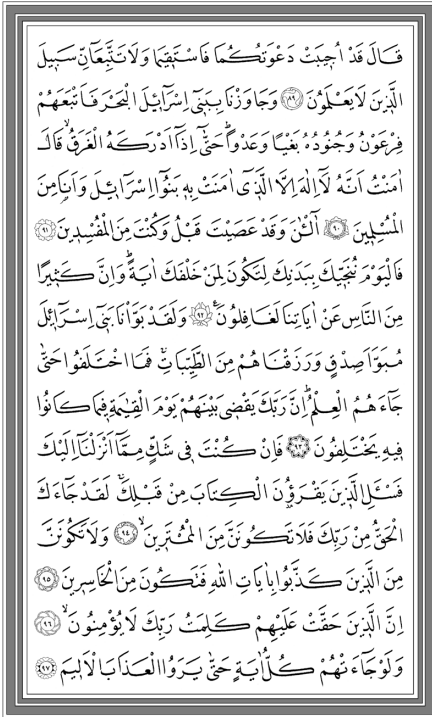 قَالَ قَدْ اُج۪يبَتْ دَعْوَتُكُمَا فَاسْتَق۪يمَا وَلَا تَتَّبِعَٓانِّ سَب۪يلَ
الَّذ۪ينَ لَا يَعْلَمُونَ ﴿٨٩﴾ وَجَاوَزْنَا بِبَن۪ٓي اِسْرَٓائ۪لَ الْبَحْرَ فَاَتْبَعَهُمْ
فِرْعَوْنُ وَجُنُودُهُ بَغْيًا وَعَدْوًاۜ حَتّٰٓى اِذَٓا اَدْرَكَهُ الْغَرَقُۙ قَالَ
اٰمَنْتُ اَنَّهُ لَٓا اِلٰهَ اِلَّا الَّذ۪ٓي اٰمَنَتْ بِه۪ بَنُٓوا اِسْرَٓائ۪لَ وَاَنَا۬ مِنَ
الْمُسْلِم۪ينَ ﴿٩٠﴾ آٰلْـٰٔنَ وَقَدْ عَصَيْتَ قَبْلُ وَكُنْتَ مِنَ الْمُفْسِد۪ينَ ﴿٩١﴾
فَالْيَوْمَ نُنَجّ۪يكَ بِبَدَنِكَ لِتَكُونَ لِمَنْ خَلْفَكَ اٰيَةًۜ وَاِنَّ كَث۪يرًا
مِنَ النَّاسِ عَنْ اٰيَاتِنَا لَغَافِلُونَ۟ ﴿٩٢﴾ وَلَقَدْ بَوَّأْنَا بَن۪ٓي اِسْرَٓائ۪لَ
مُبَوَّاَ صِدْقٍ وَرَزَقْنَاهُمْ مِنَ الطَّيِّبَاتِۚ فَمَا اخْتَلَفُوا حَتّٰى
جَٓاءَهُمُ الْعِلْمُۜ اِنَّ رَبَّكَ يَقْض۪ي بَيْنَهُمْ يَوْمَ الْقِيٰمَةِ ف۪يمَا كَانُوا
ف۪يهِ يَخْتَلِفُونَ ﴿٩٣﴾ فَاِنْ كُنْتَ ف۪ي شَكٍّ مِمَّٓا اَنْزَلْنَٓا اِلَيْكَ
فَسْـَٔلِ الَّذ۪ينَ يَقْرَؤُ۫نَ الْكِتَابَ مِنْ قَبْلِكَۚ لَقَدْ جَٓاءَكَ
الْحَقُّ مِنْ رَبِّكَ فَلَا تَكُونَنَّ مِنَ الْمُمْتَر۪ينَۙ ﴿٩٤﴾ وَلَا تَكُونَنَّ
مِنَ الَّذ۪ينَ كَذَّبُوا بِاٰيَاتِ اللّٰهِ فَتَكُونَ مِنَ الْخَاسِر۪ينَ ﴿٩٥﴾
اِنَّ الَّذ۪ينَ حَقَّتْ عَلَيْهِمْ كَلِمَتُ رَبِّكَ لَا يُؤْمِنُونَۙ ﴿٩٦﴾
وَلَوْ جَٓاءَتْهُمْ كُلُّ اٰيَةٍ حَتّٰى يَرَوُا الْعَذَابَ الْاَل۪يمَ ﴿٩٧﴾